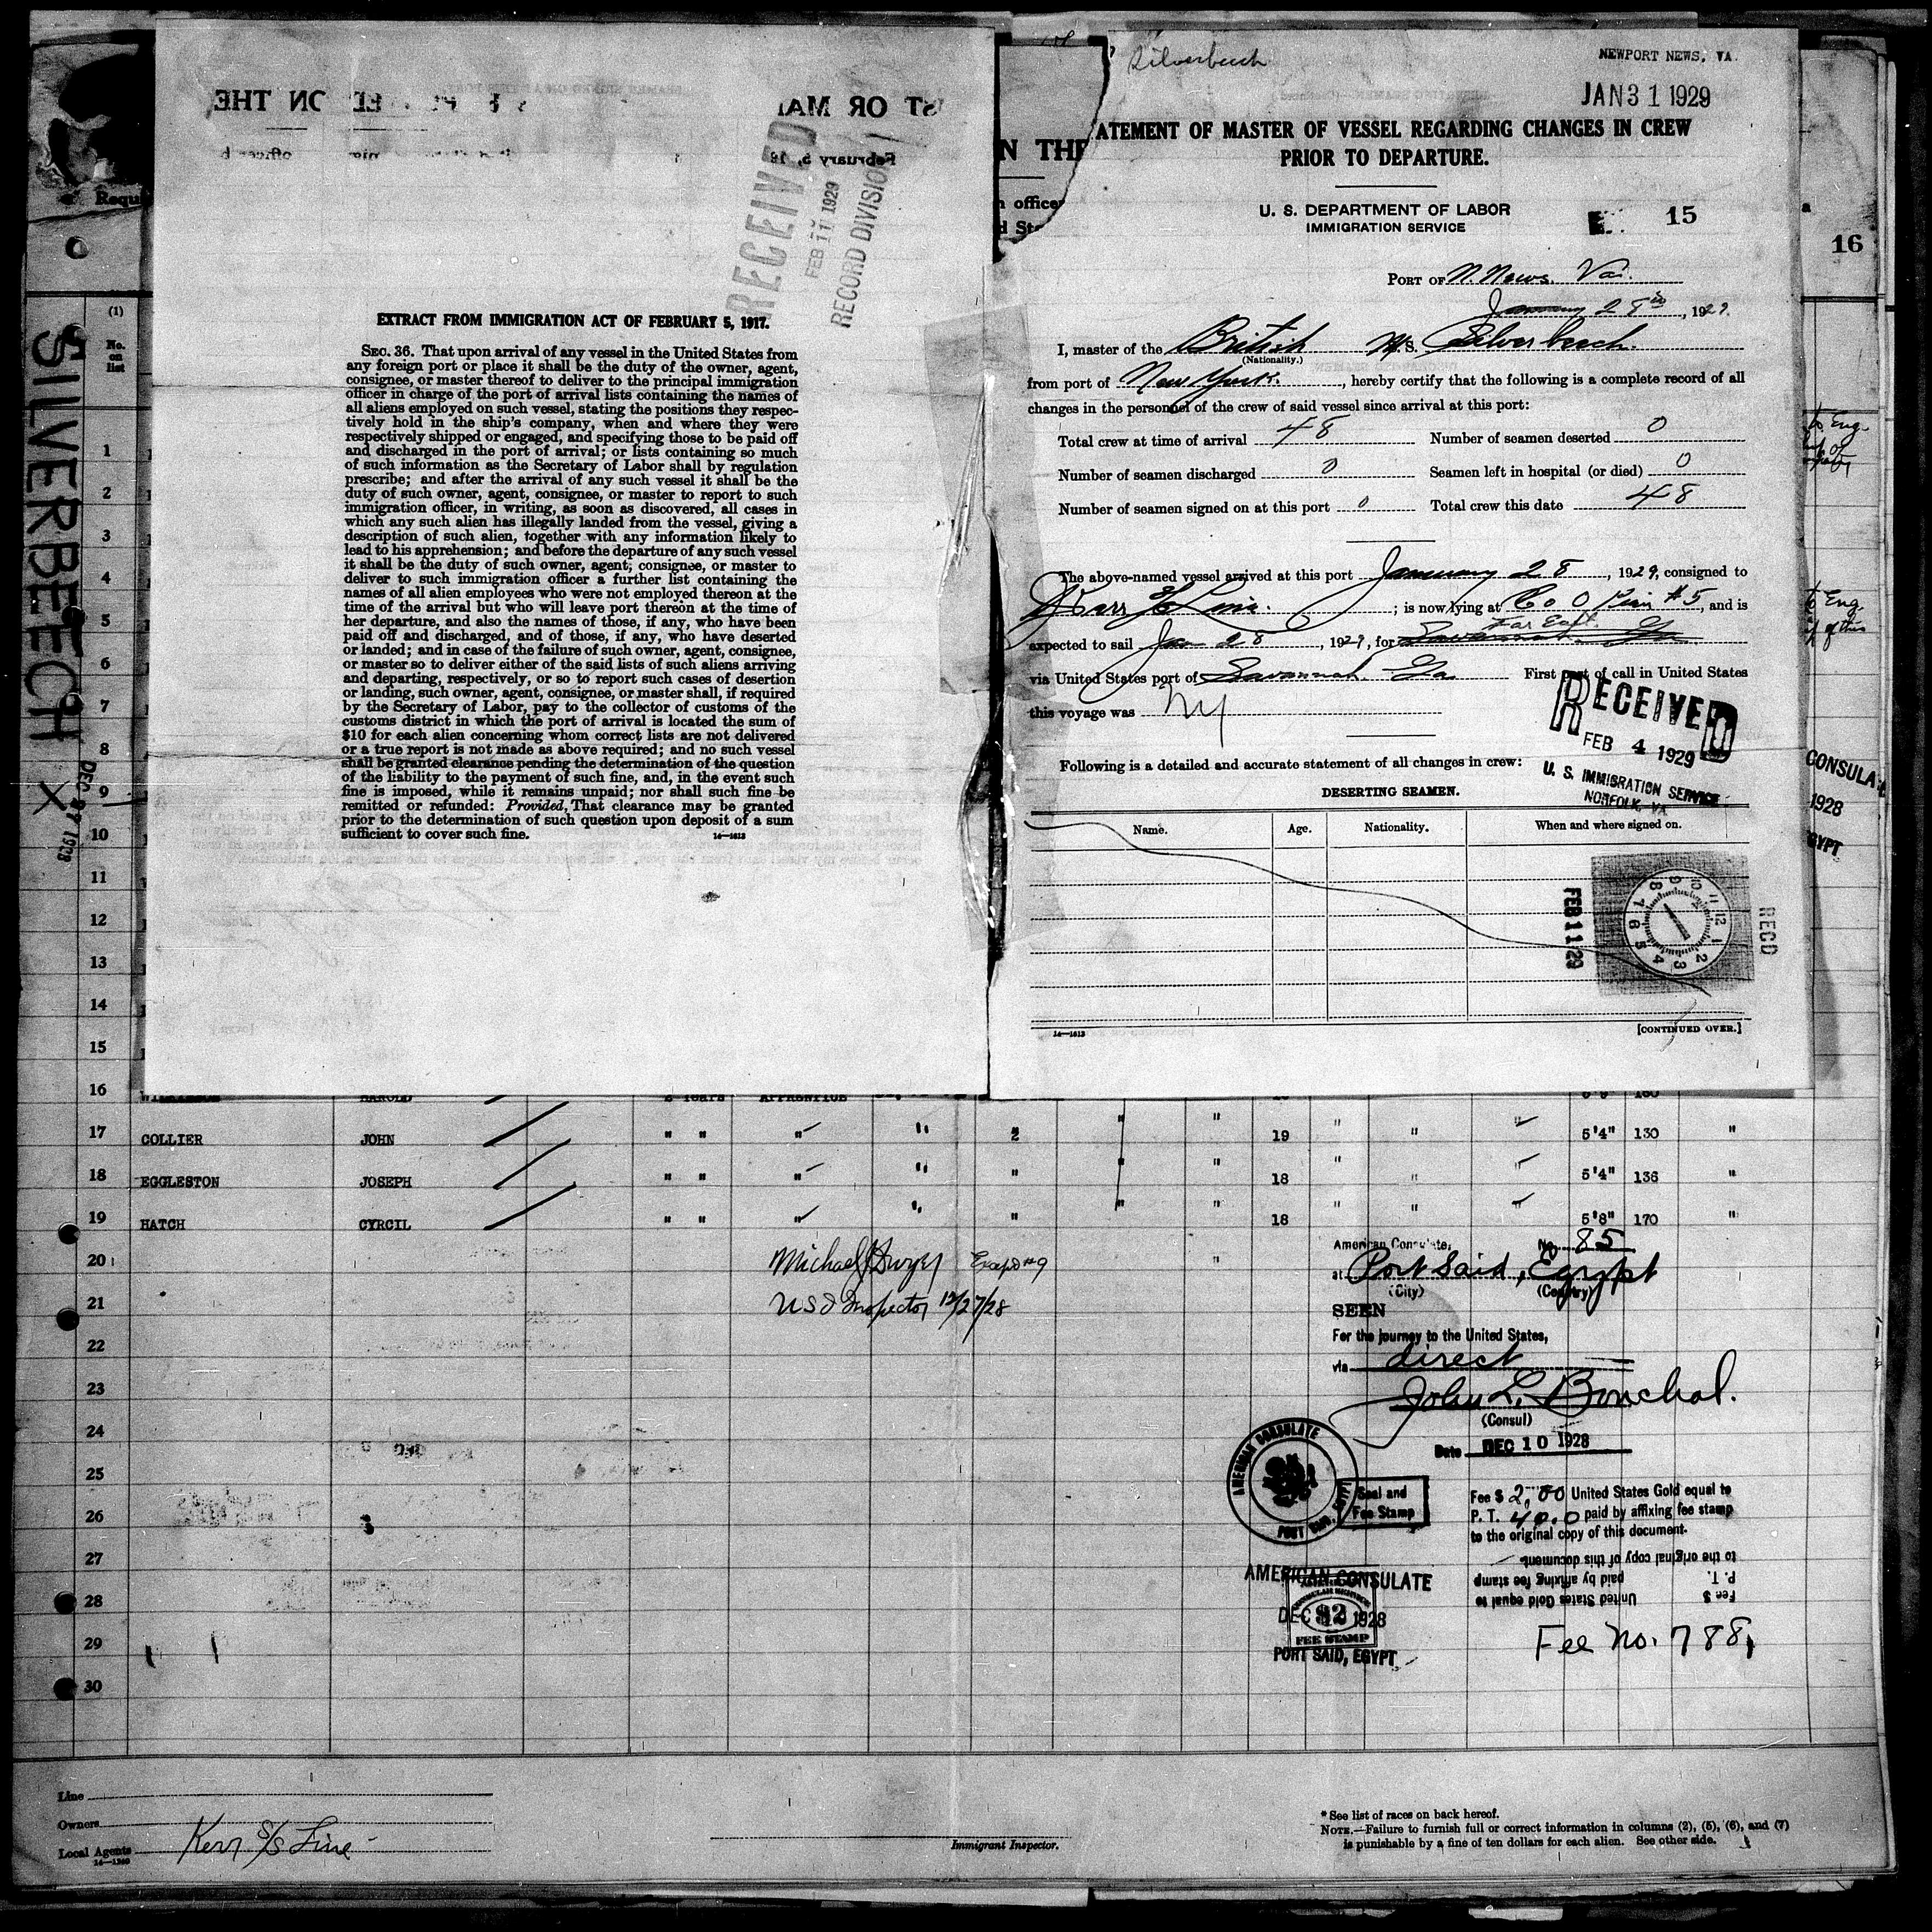 Silverbeech
NEWPORT NEWS, VA.
JAN 31 1929
ATEMENT OF MASTER OF VESSEL REGARDING CHANGES IN CREW
PRIOR TO DEPARTURE.
U. S. DEPARTMENT OF LABOR
IMMIGRATION SERVICE
15
16
PORT OF N. News. Va.
January 28th, 1929.
I, master of the British M.S. Silverbeech.
(Nationality.)
from port of New York., hereby certify that the following is a complete record of all
changes in the personnel of the crew of said vessel since arrival at this port:
Total crew at time of arrival 48 Number of seamen deserted 0
Number of seamen discharged 0 Seamen left in hospital (or died) 0
Number of seamen signed on at this port 0 Total crew this date 48
The above-named vessel arrived at this port January 28, 1929, consigned to
Kerr Line.; is now lying at C&O Pier #5, and is
Far East
expected to sail Jan 28, 1929, for Savannah Ga
via United States port of Savannah Ga First port of call in United States
this voyage was NY
RECEIVED
FEB 4 1929
U. S. IMMIGRATION SERVICE
NORFOLK, VA
Following is a detailed and accurate statement of all changes in crew:
DESERTING SEAMEN.
Name. Age. Nationality. When and where signed on.
FEB 11 29
RECD
14—1613
[CONTINUED OVER.]
RECEIVED
FEB 11 1929
RECORD DIVISION
February 5, 19
EXTRACT FROM IMMIGRATION ACT OF FEBRUARY 5, 1917.
SEC. 36. That upon arrival of any vessel in the United States from
any foreign port or place it shall be the duty of the owner, agent,
consignee, or master thereof to deliver to the principal immigration
officer in charge of the port of arrival lists containing the names of
all aliens employed on such vessel, stating the positions they respec-
tively hold in the ship's company, when and where they were
respectively shipped or engaged, and specifying those to be paid off
and discharged in the port of arrival; or lists containing so much
of such information as the Secretary of Labor shall by regulation
prescribe; and after the arrival of any such vessel it shall be the
duty of such owner, agent, consignee, or master to report to such
immigration officer, in writing, as soon as discovered, all cases in
which any such alien has illegally landed from the vessel, giving a
description of such alien, together with any information likely to
lead to his apprehension; and before the departure of any such vessel
it shall be the duty of such owner, agent; consignee, or master to
deliver to such immigration officer a further list containing the
names of all alien employees who were not employed thereon at the
time of the arrival but who will leave port thereon at the time of
her departure, and also the names of those, if any, who have been
paid off and discharged, and of those, if any, who have deserted
or landed; and in case of the failure of such owner, agent, consignee,
or master so to deliver either of the said lists of such aliens arriving
and departing, respectively, or so to report such cases of desertion
or landing, such owner, agent, consignee, or master shall, if required
by the Secretary of Labor, pay to the collector of customs of the
customs district in which the port of arrival is located the sum of
$10 for each alien concerning whom correct lists are not delivered
or a true report is not made as above required; and no such vessel
shall be granted clearance pending the determination of the question
of the liability to the payment of such fine, and, in the event such
fine is imposed, while it remains unpaid; nor shall such fine be
remitted or refunded: Provided, That clearance may be granted
prior to the determination of such question upon deposit of a sum
sufficient to cover such fine.
14—1613
SILVERBEECH X
DEC 27 1928
(1)
No. on list
1
2
3
4
5
6
7
8
9
10
11
12
13
14
15
16 HAROLD 2 Years APPRENTICE
17 COLLIER JOHN " " " " 2 " " 19 " " " 5'4" 130 "
18 EGGLESTON JOSEPH " " " " " " " 18 " " " 5'4" 136 "
19 HATCH CYRCIL " " " " " " " 18 " " " 5'8" 170 "
20
21
22
23
24
25
26
27
28
29
30
Michael J Dwyer
US Inspector 12/27/28
American Consulate, No. 85
at Port Said, Egypt
(City) (Country)
SEEN
For the journey to the United States,
via direct
John L. Bouchal.
(Consul)
Date DEC 10 1928
AMERICAN CONSULATE
PORT SAID, EGYPT
Seal and
Fee Stamp
Fee $ 2.00 United States Gold equal to
P. T. 40.0 paid by affixing fee stamp
to the original copy of this document.
Fee $ United States Gold equal to
P. T. paid by affixing fee stamp
to the original copy of this document.
AMERICAN CONSULATE
DEC 1928
$2
FEE STAMP
PORT SAID, EGYPT
Fee No. 788,
CONSULA
1928
GYPT
Line
Owners
Local Agents Kerr S/S Line
14—1240
Immigrant Inspector.
* See list of races on back hereof.
NOTE.—Failure to furnish full or correct information in columns (2), (5), (6), and (7)
is punishable by a fine of ten dollars for each alien. See other side.